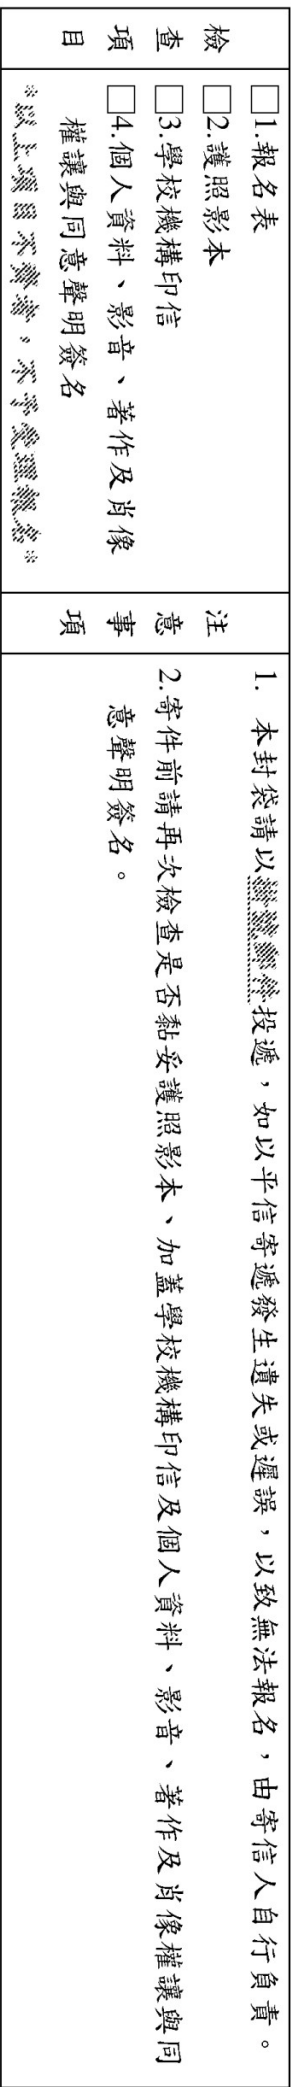 檢查項目
□1.報名表
□2.護照影本
□3.學校機構印信
□4.個人資料、影音、著作及肖像
權讓與同意聲明簽名
*以上項目不齊者，不予受理報名*
注意事項
1. 本封袋請以掛號郵件投遞，如以平信寄遞發生遺失或遲誤，以致無法報名，由寄信人自行負責。
2.寄件前請再次檢查是否黏妥護照影本、加蓋學校機構印信及個人資料、影音、著作及肖像權讓與同
意聲明簽名。